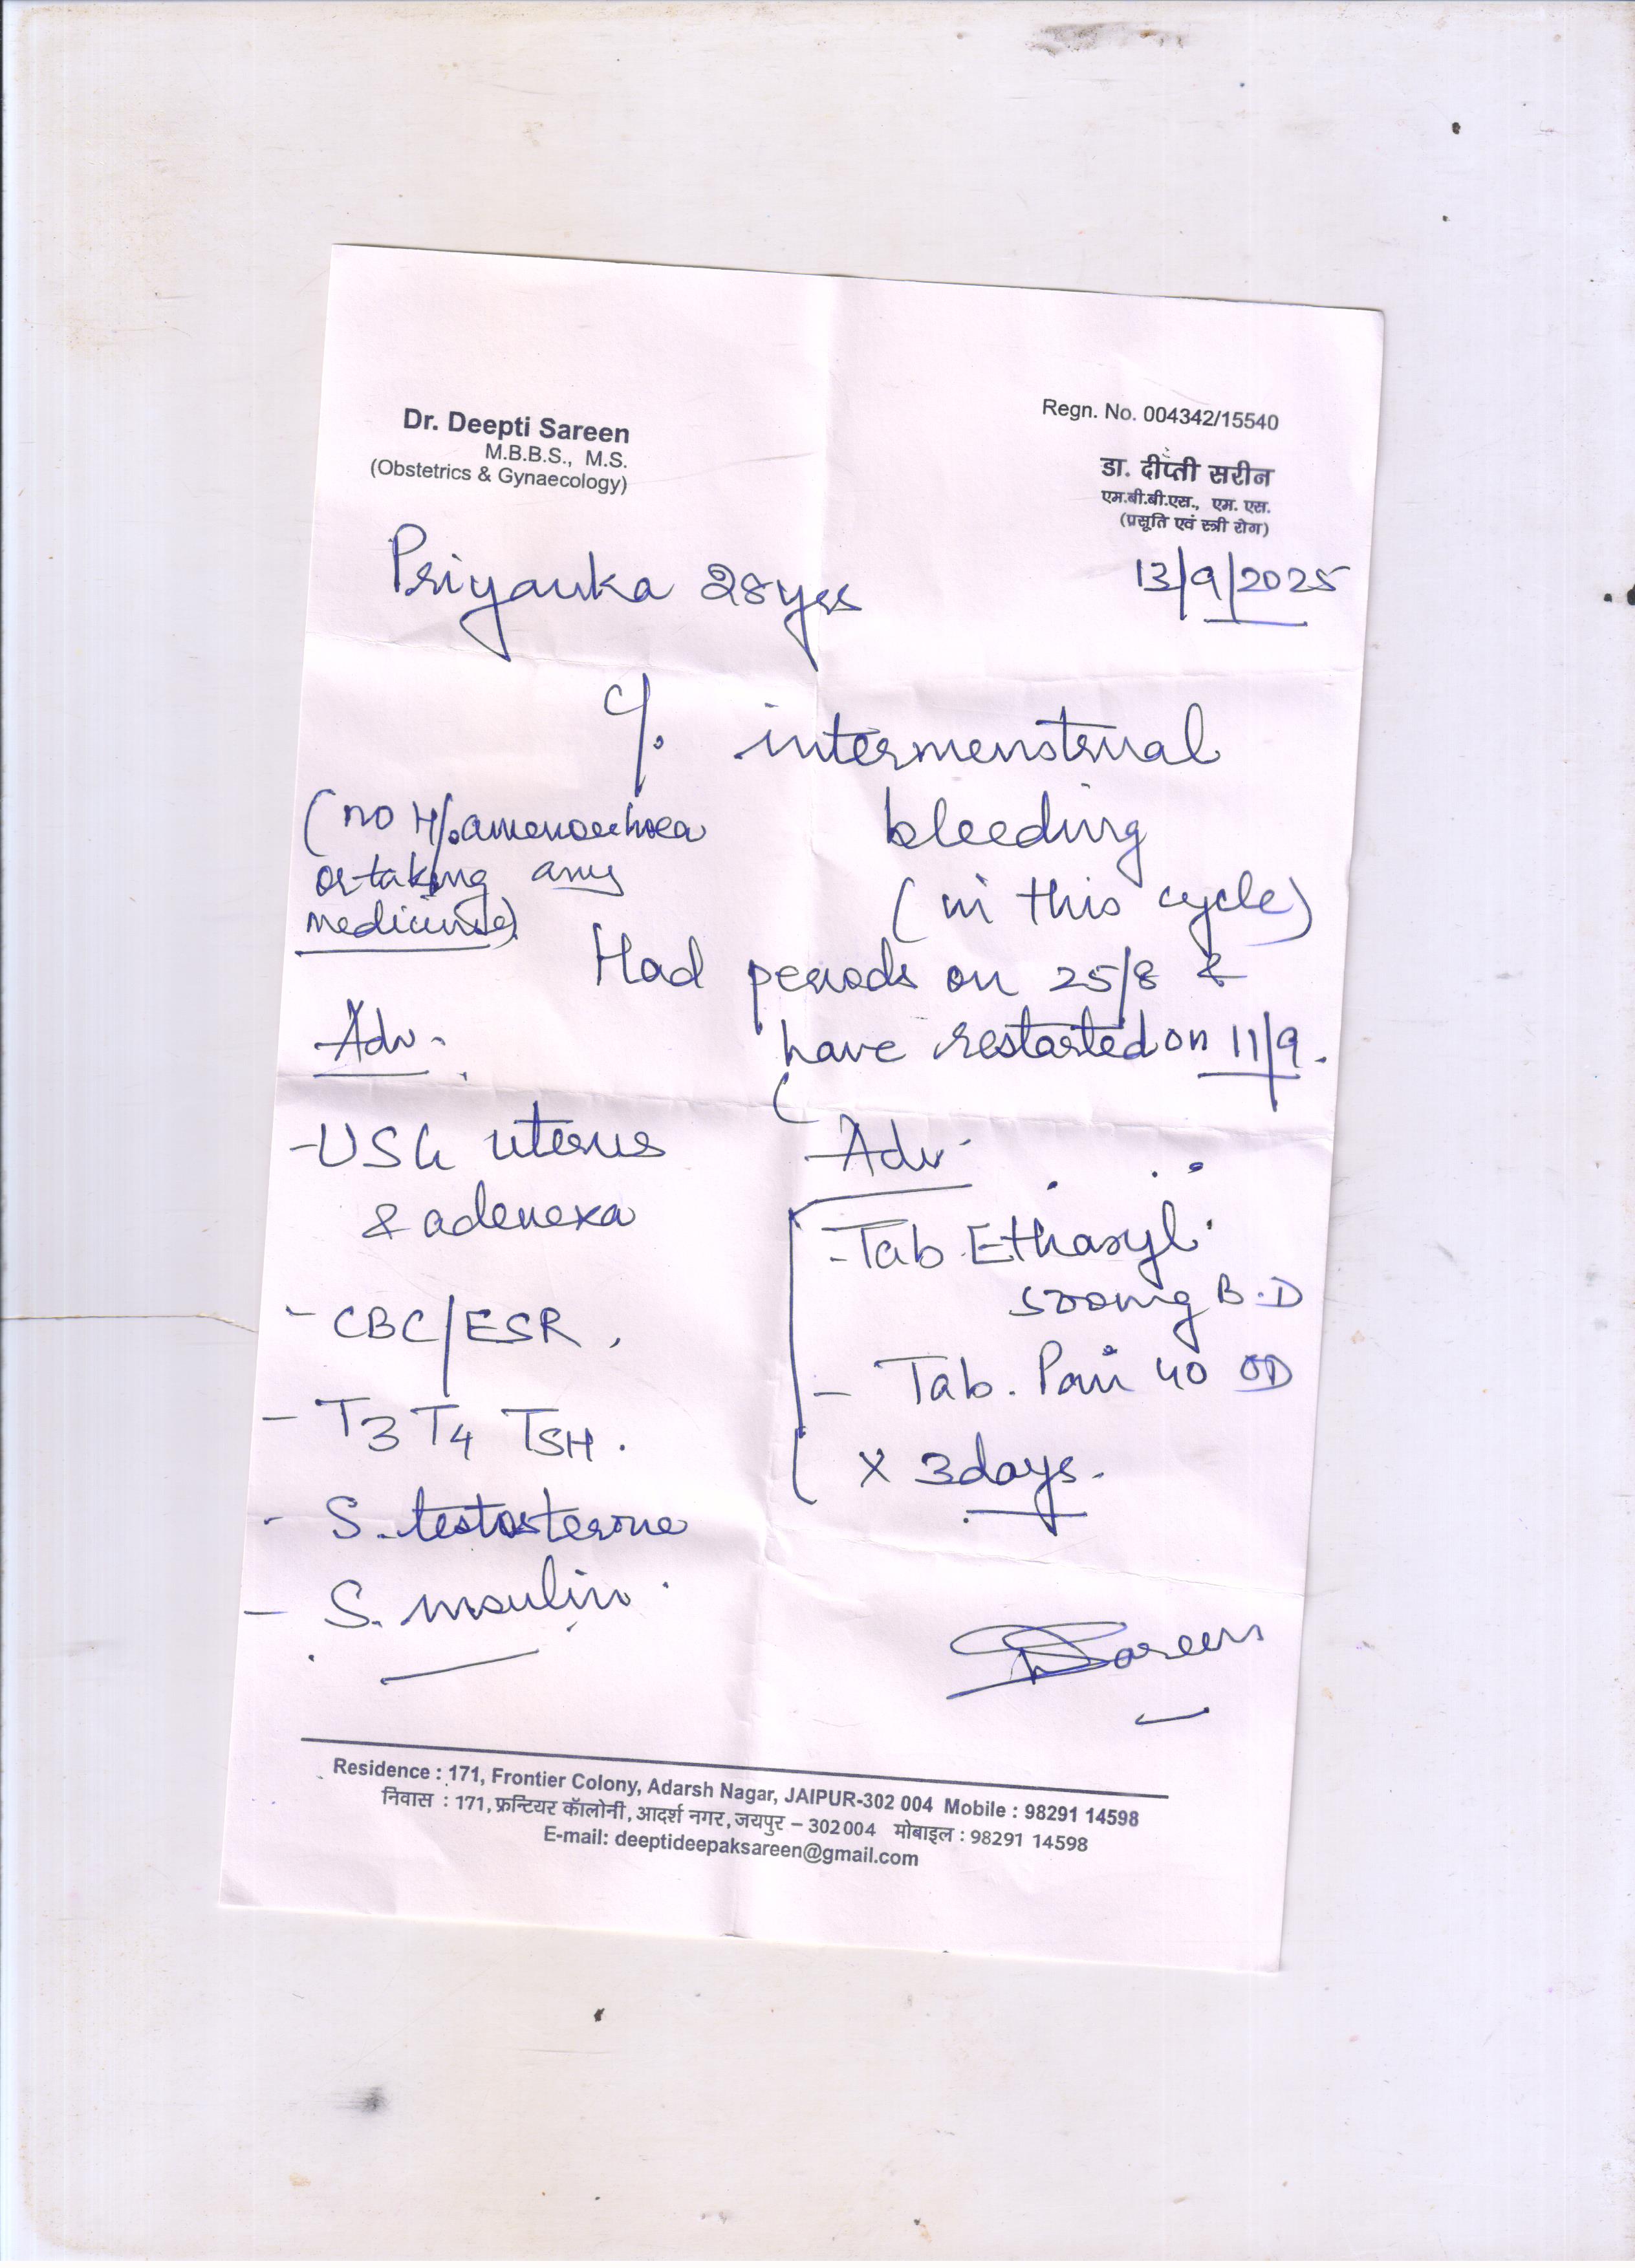 Dr. Deepti Sareen
M.B.B.S., M.S.
(Obstetrics & Gynaecology)
Regn. No. 004342/15540
डा. दीप्ती सरीन
एम.बी.बी.एस., एम. एस.
(प्रसूति एवं स्त्री रोग)
Priyanka 28yrs
13/9/2025
C/o intermenstrual
bleeding
(in this cycle)
(no H/o amenorrhoea
or taking any
medicine)
Had periods on 25/8 &
have restarted on 11/9.
Adv.
- USG uterus
& adenexa
- CBC/ESR,
- T3 T4 TSH.
- S. testosterone
- S. insulin.
Adv.
- Tab Ethasyl
500mg B.D
- Tab. Pan 40 OD
x 3days.
Sareen
Residence : 171, Frontier Colony, Adarsh Nagar, JAIPUR-302 004 Mobile : 98291 14598
निवास : 171, फ्रन्टियर कॅालोनी, आदर्श नगर, जयपुर – 302004 मोबाइल : 98291 14598
E-mail: deeptideepaksareen@gmail.com